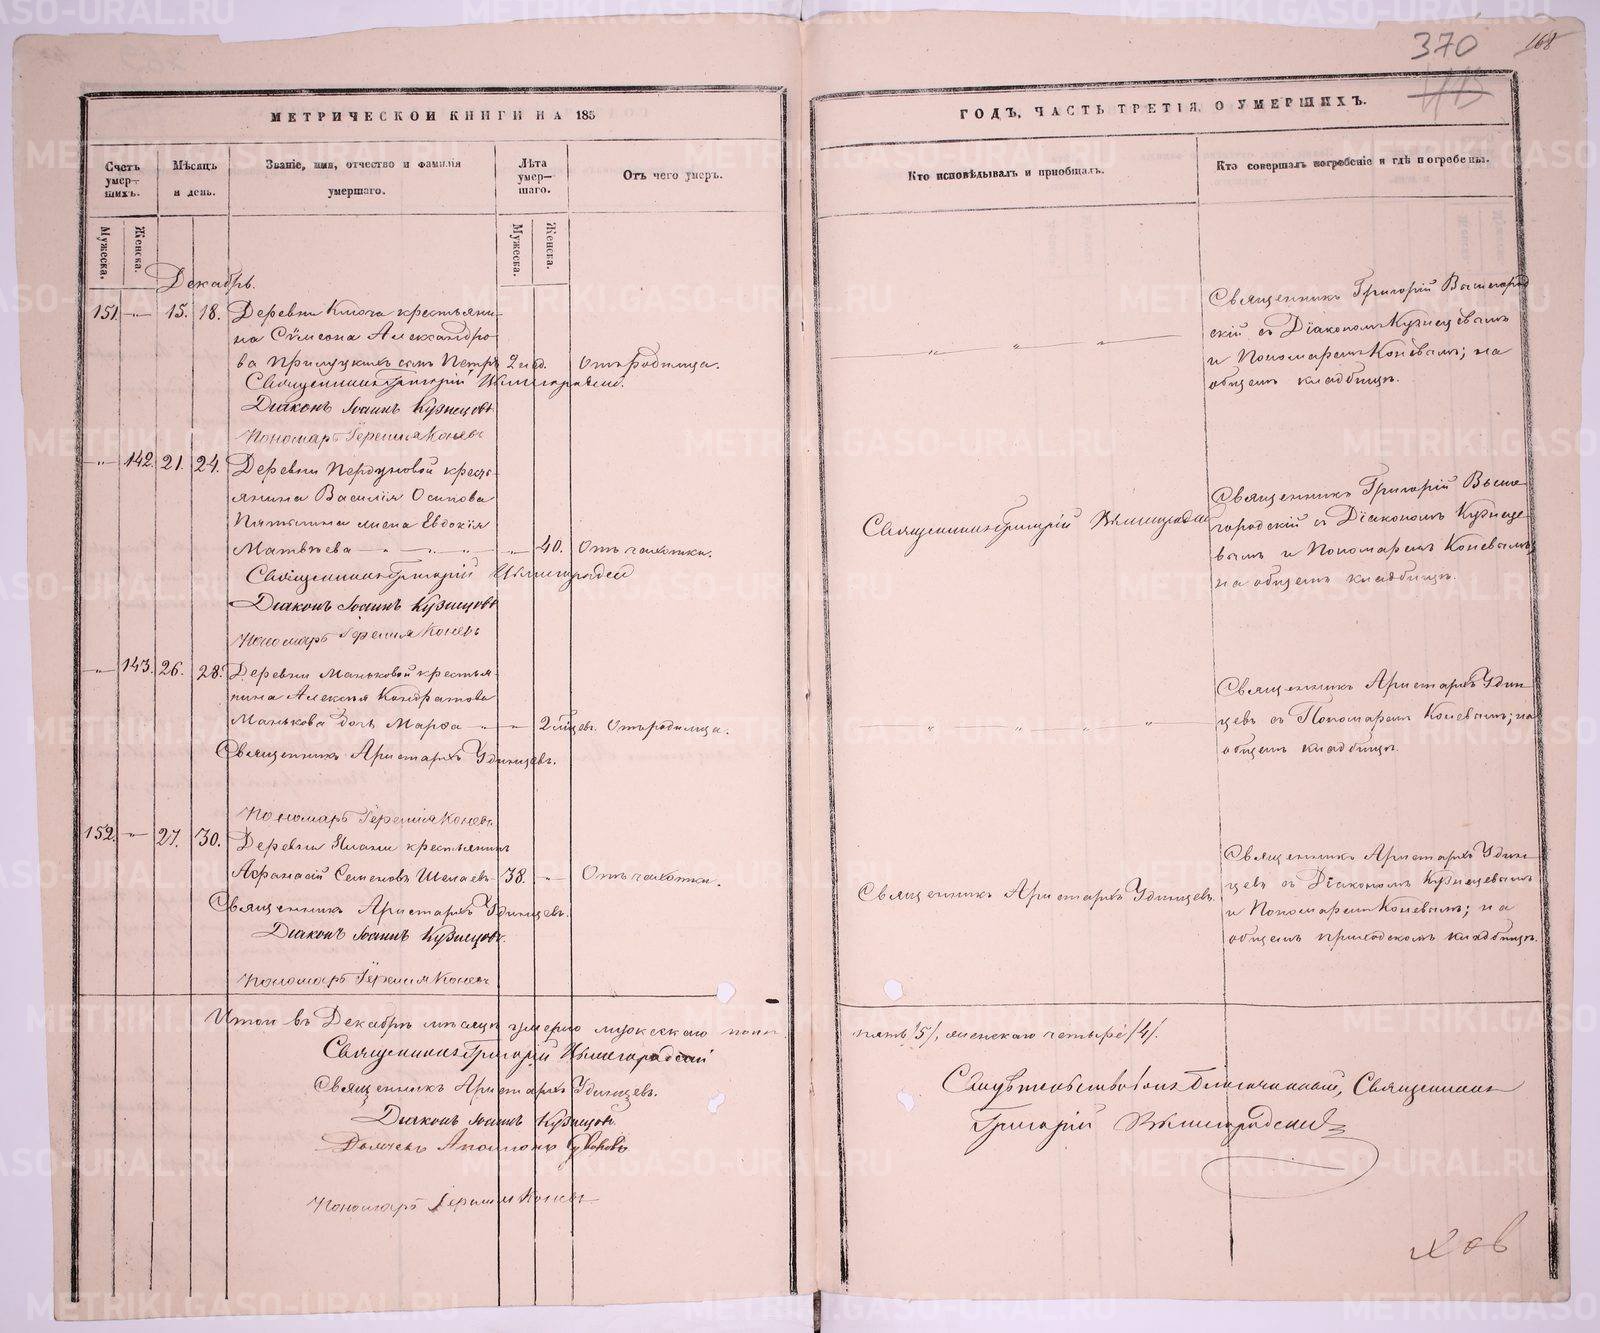 370
168
МЕТРИЧЕСКОЙ КНИГИ НА 185
Счетъ умер-шихъ.
Мѣсяцъ и день.
Званіе, имя, отчество и фамилія умершаго.
Лѣта умер-шаго.
Отъ чего умеръ.
Мужеска.
Женска.
Мужеска.
Женска.
Декабрь.
151. — 15. 18. Деревни Ключа крестьяни-
на Сѵмеона Александро-
ва сынъ Петръ 2 нед. Отъ родимца.
Священникъ Григорій Вышегородскій.
Діаконъ Іоаннъ Кузнецовъ
Пономарь Іеремія Коневъ
— 142. 21. 24. Деревни кресть-
янина Василія Осипова
жена Евдокія
Матвѣева — 40. Отъ чахотки.
Священникъ Григорій Вышегородскій
Діаконъ Іоаннъ Кузнецовъ
Пономарь Іеремія Коневъ
— 143. 26. 28. Деревни Маньковой крестья-
нина Алексѣя Кондратова
Манькова дочь Марѳа — 2 мѣсяц. Отъ родимца.
Священникъ Аристархъ Удинцевъ.
Пономарь Іеремія Коневъ
152. — 27. 30. Деревни крестьянинъ
Аѳанасій Семеновъ 38. — Отъ чахотки.
Священникъ Аристархъ Удинцевъ.
Діаконъ Іоаннъ Кузнецовъ.
Пономарь Іеремія Коневъ
Итого въ Декабрѣ мѣсяцѣ умерло мужескаго пола
Священникъ Григорій Вышегородскій
Священникъ Аристархъ Удинцевъ.
Діаконъ Іоаннъ Кузнецовъ.
Дьячекъ Суворовъ
Пономарь Іеремія Коневъ
ГОДЪ, ЧАСТЬ ТРЕТІЯ, О УМЕРШИХЪ.
Кто исповѣдывалъ и пріобщалъ.
Кто совершалъ погребеніе и гдѣ погребены.
Священникъ Григорій Вышегород
скій съ Діакономъ Кузнецовымъ
и Пономаремъ Коневымъ; на
общемъ кладбищѣ.
Священникъ Григорій Вышегородскій
Священникъ Григорій Выше-
городскій съ Діакономъ Кузнецо-
вымъ и Пономаремъ Коневымъ;
на общемъ кладбищѣ.
Священникъ Аристархъ Удин-
цевъ съ Пономаремъ Коневымъ; на
общемъ кладбищѣ.
Священникъ Аристархъ Удинцевъ.
Священникъ Аристархъ Удин-
цевъ съ Діакономъ Кузнецовымъ
и Пономаремъ Коневымъ; на
общемъ приходскомъ кладбищѣ.
пять /5/, женскаго четыре /4/.
Свидѣтельствовалъ Благочинный, Священникъ
Григорій Вышегородскій
METRIKI.GASO-URAL.RU